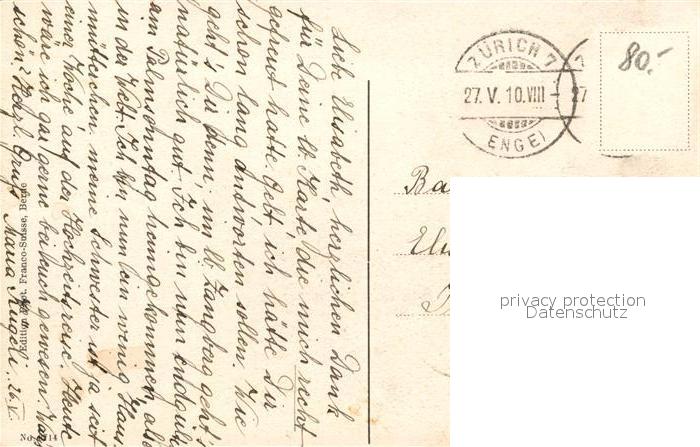 Liebe Elisabeth, herzlichen Dank
für Deine lb. Karte die mich recht
gefreut hatte. Gelt, ich hätte Dir
schon lang antworten sollen. Wie
geht's Dir denn, im lb. Zangberg geht's
natürlich gut. Ich bin nun endgültig
am Palmsonntag heimgekommen, also
in der Welt. Ich bin nun ein wenig Haus
mütterchen, meine Schwester ist ja seit
einer Woche auf der Hochzeitsreise. Heute
wäre ich gar gerne bei Euch gewesen. War's
schön? Herzl. Gruss Maria 26.V.
Edition Phot. Franco-Suisse, Berne
No
14
ZÜRICH 7
27. V. 10.VIII-
(ENGE)
27
80.-
Ba
El
privacy protection
Datenschutz